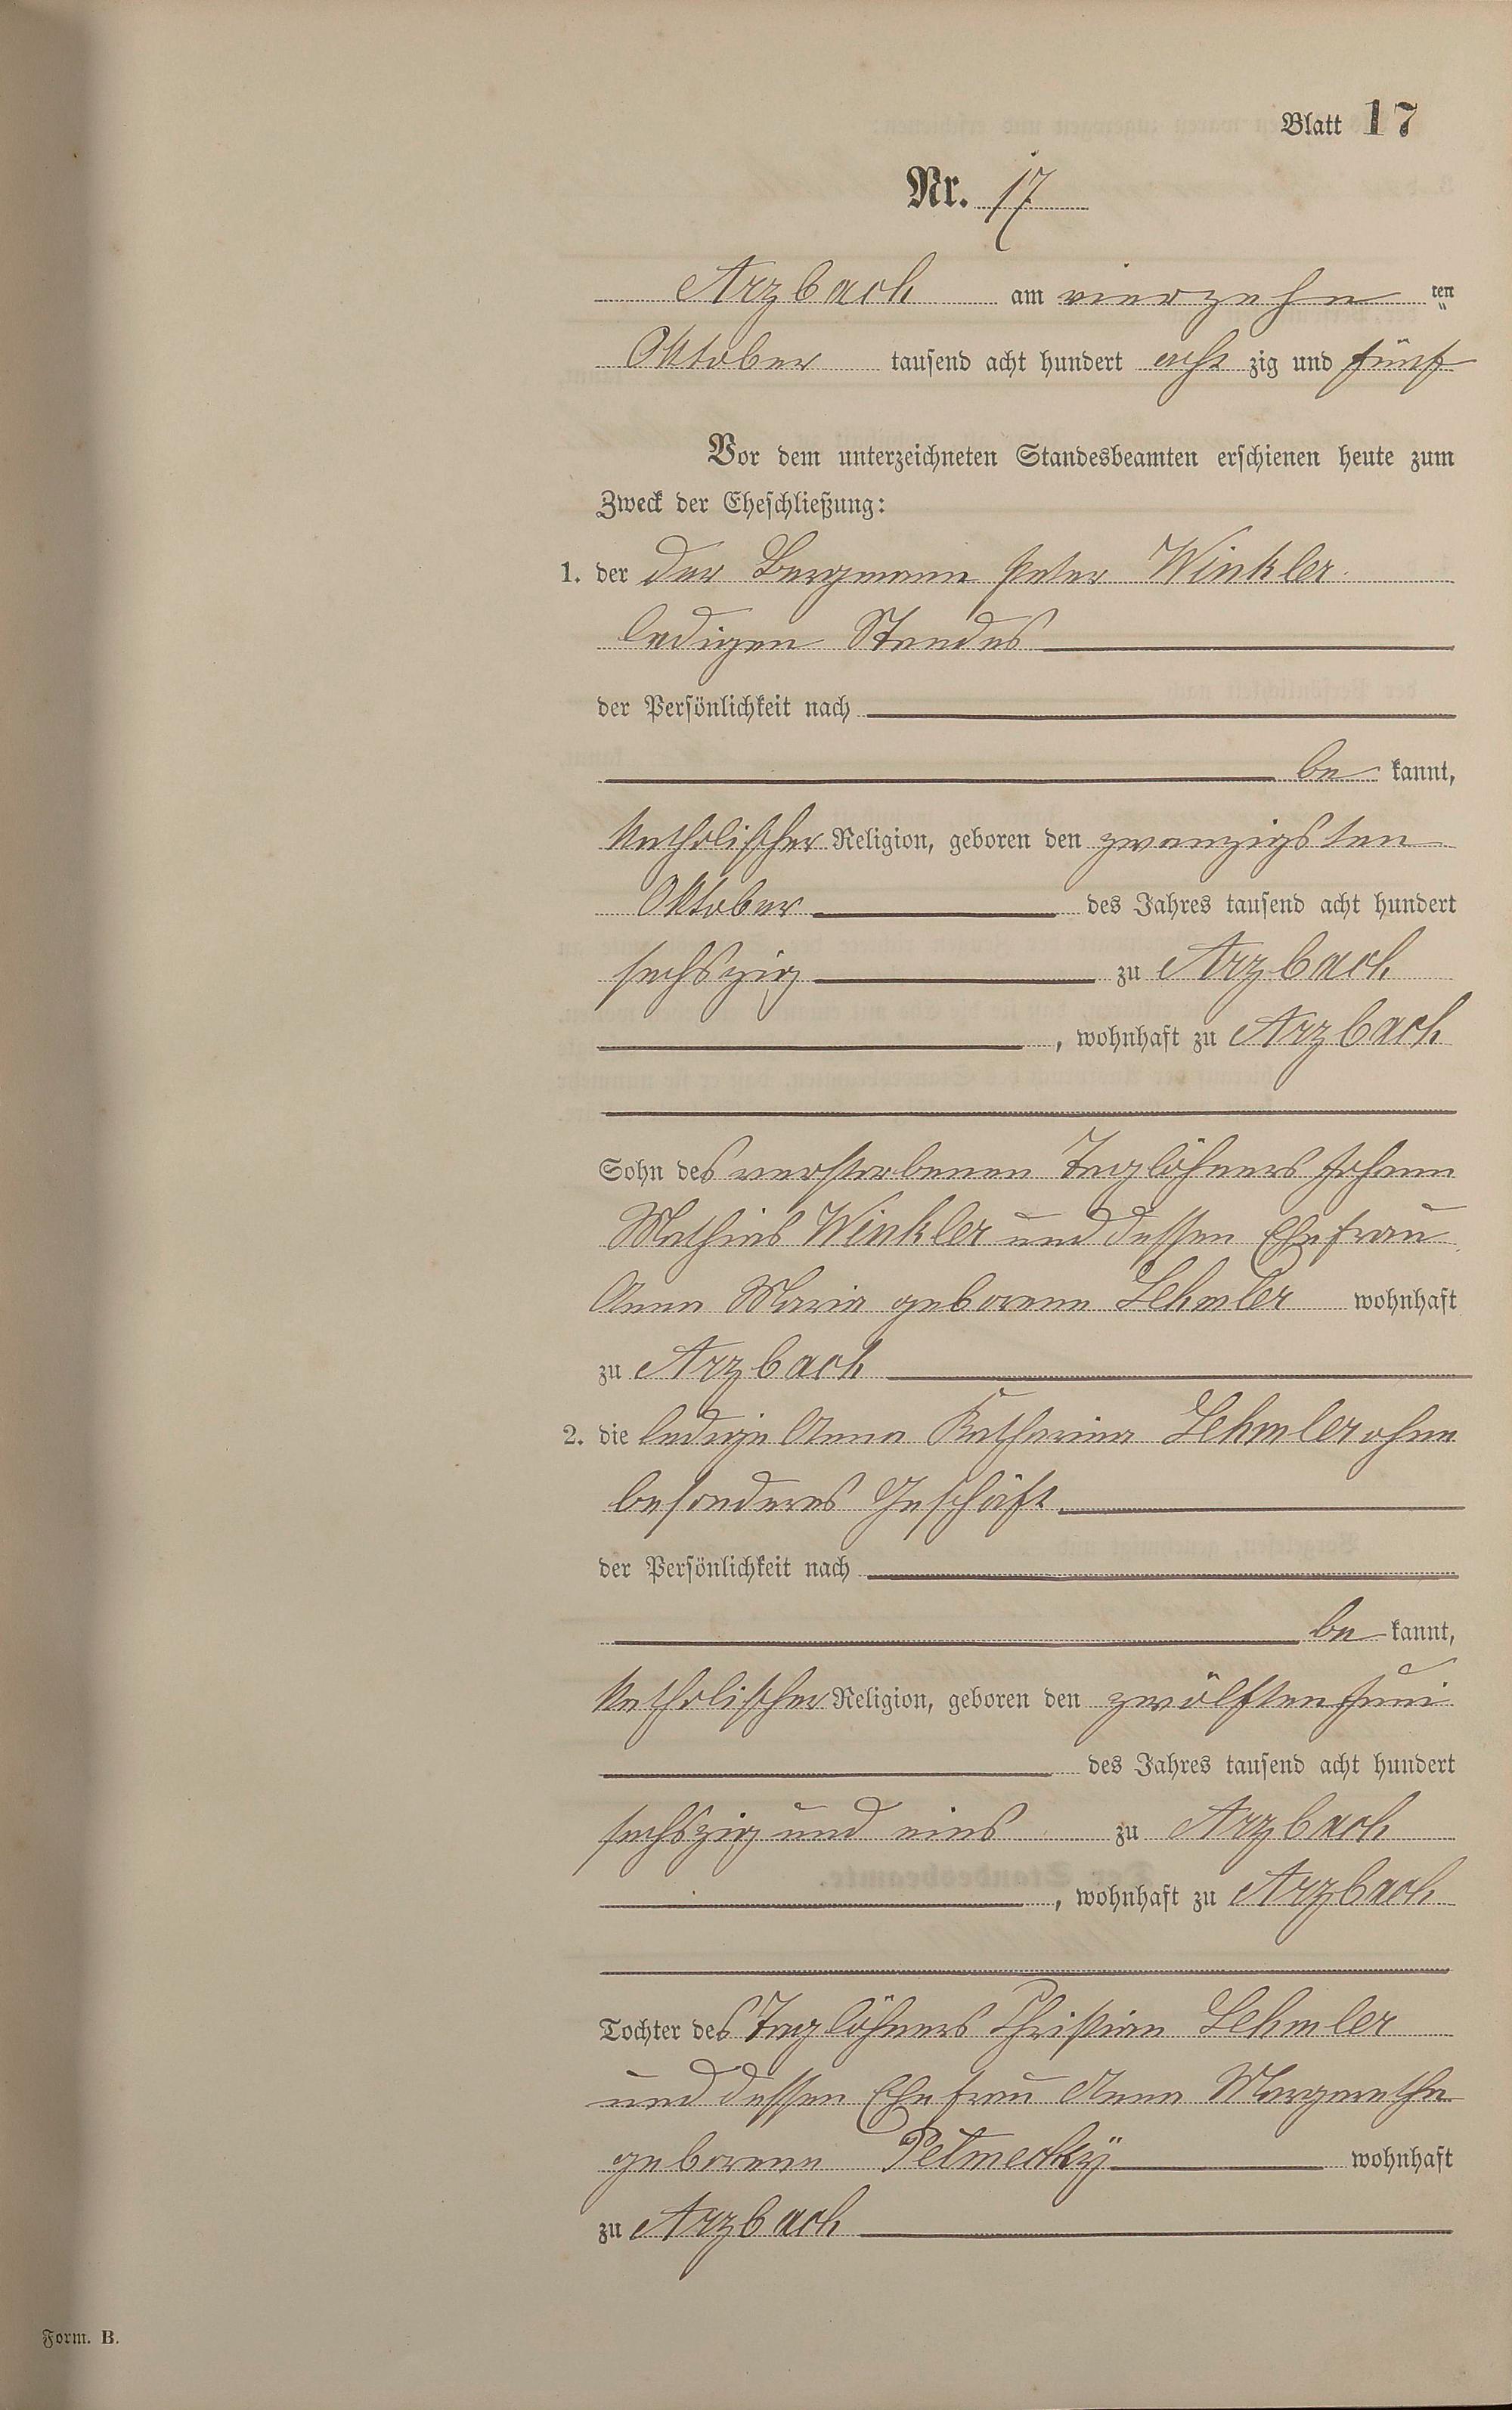 Blatt 17
Nr. 17
Arzbach am vierzehn ten
Oktober tausend acht hundert acht zig und fünf
Vor dem unterzeichneten Standesbeamten erschienen heute zum
Zweck der Eheschließung:
1. der der Bergmann Peter Winkler
ledigen Standes
der Persönlichkeit nach
be kannt,
katholischer Religion, geboren den zwanzigsten
Oktober des Jahres tausend acht hundert
sechszig zu Arzbach
, wohnhaft zu Arzbach
Sohn des verstorbenen Taglöhners Johann
Mathias Winkler und dessen Ehefrau
Anna Maria geborene Lehmler wohnhaft
zu Arzbach
2. die ledige Anna Katharina Lehmler ohne
besonderes Geschäft
der Persönlichkeit nach
be kannt,
katholischer Religion, geboren den zwölften Juni
des Jahres tausend acht hundert
sechszig und eins zu Arzbach
, wohnhaft zu Arzbach
Tochter des Taglöhners Christian Lehmler
und dessen Ehefrau Anna Margaretha
geborene Petmecky wohnhaft
zu Arzbach
Form. B.